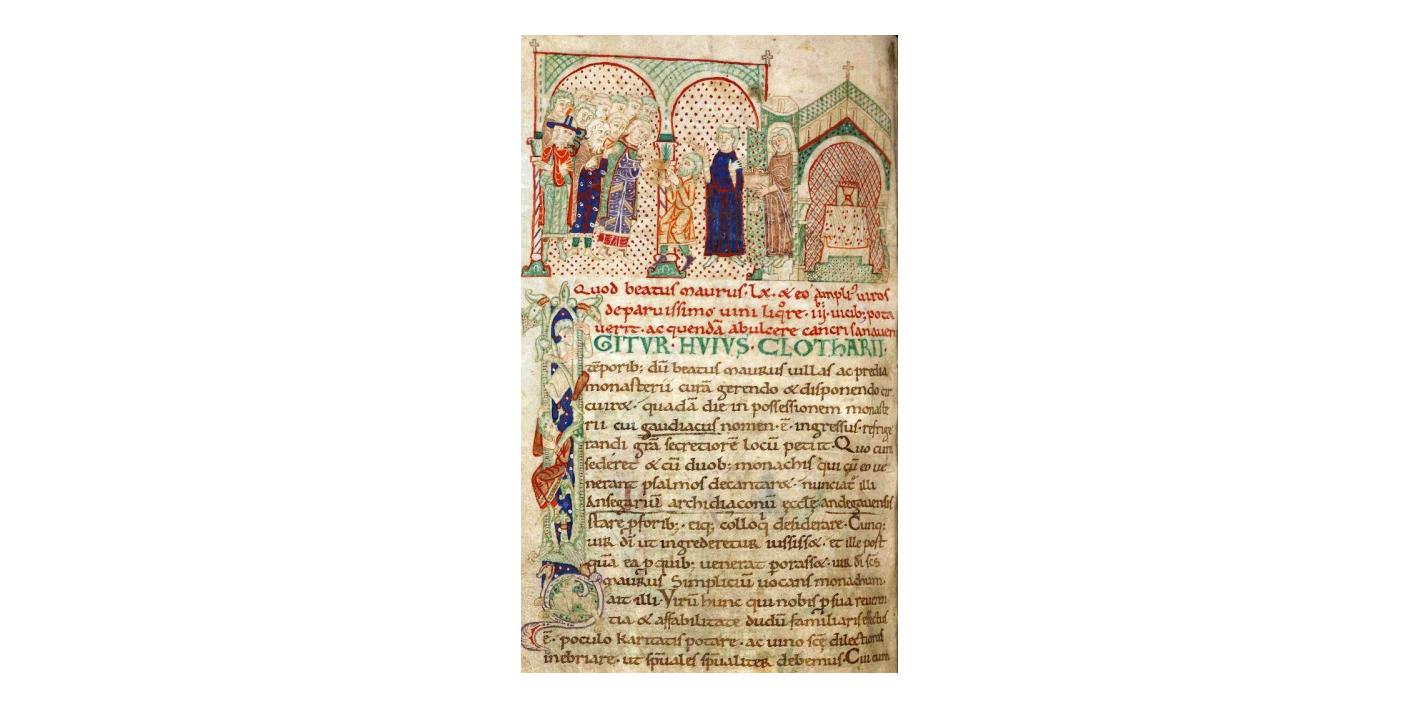 Quod beatus maurus· lx· & eo ampli᾽ uiros
de paruissimo uini liqore· iij· uicib; pota
uerit· ac quendā ab ulcere cancri sanauerit
IGITVR· HVIVS· CLOTHARII·
tēporib; dū beatus maurus uillas ac predia
monasterii curā gerendo & disponendo cir
cuir&· quadā die in possessionem monaste
rii cui gaudiacus nomen· ē· ingressus· refrige
randi grā secretiorē locū petiit· Quo cum
seder& & cū duob; monachis qui cū eo ue
nerant psalmos decantar&· nunciat̄ illi
Ansegariū archidiaconū eccłe andegauensis
stare p̄ forib;· eiq; colloq̄ desiderare· Cunq;
uir dī ut ingrederetur iussiss&· et ille post
quā ea p quib; uenerat poras&· uir dī scs
maurus Simpliciū uocans monachum·
ait illi· Virū hunc qui nobis p sua reueren
tia & affabilitate dudū familiaris effectus
ē· poculo karitatis potare· ac uino scē dilectionis
inebriare· ut spūales spūaliter debemus· Cui cum